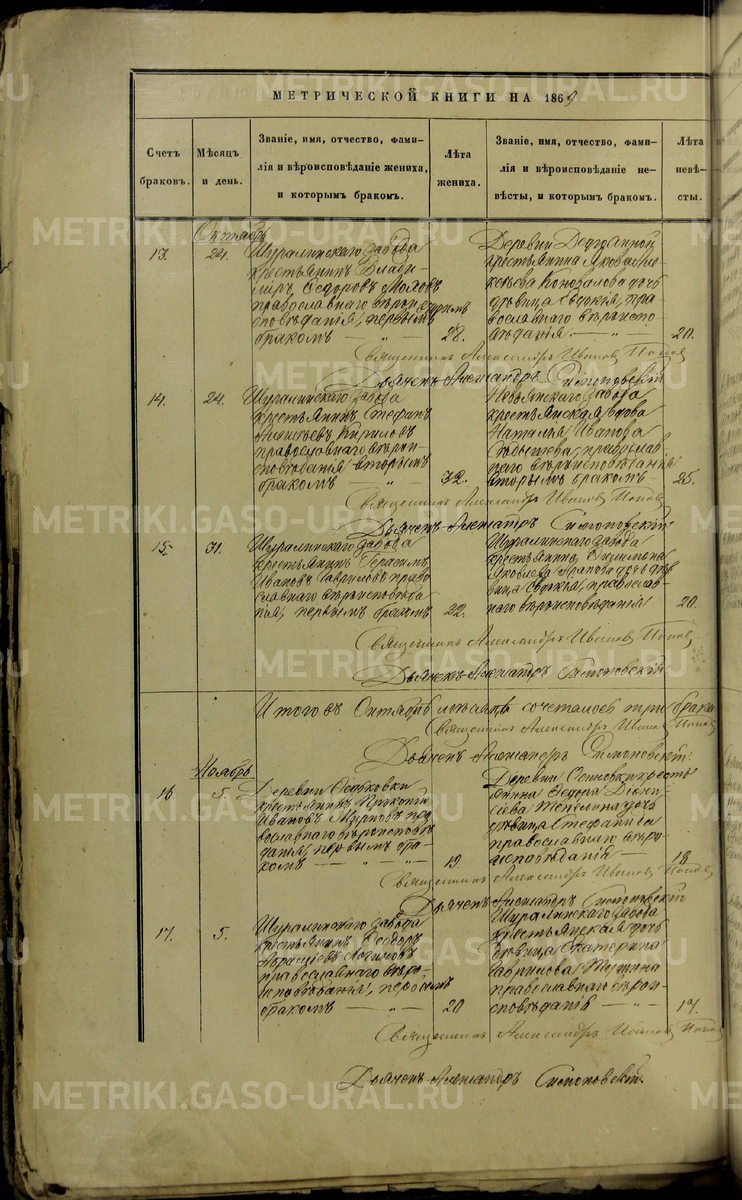 МЕТРИЧЕСКОЙ КНИГИ НА 1869
Счетъ браковъ.
Мѣсяцъ и день.
Званіе, имя, отчество, фами-
лія и вѣроисповѣданіе жениха,
и которымъ бракомъ.
Лѣта жениха.
Званіе, имя, отчество, фами-
лія и вѣроисповѣданіе не-
вѣсты, и которымъ бракомъ.
Лѣта невѣ-
сты.
Октябрь
13.
24.
Шуралинскаго завода
крестьянинъ Влади-
миръ Ѳедоровъ
православнаго вѣрои
сповѣданія, первымъ
бракомъ — „ —
28.
Деревни
крестьянина Якова Але
ксѣева Коновалова дочь
дѣвица Евдокія, пра-
вославнаго вѣроиспо-
вѣданія. — „ —
20.
Священникъ Александръ Ивановъ Поповъ
Дьячекъ Александръ Симоновскій
14.
24.
Шуралинскаго завода
крестьянинъ Стефанъ
Алексѣевъ Кириловъ
православнаго вѣрои-
сповѣданія вторымъ
бракомъ — „ —
32.
Невьянскаго завода
крестьянская вдова
Наталья Иванова
православ-
наго вѣроисповѣданія
вторымъ бракомъ —
25.
Священникъ Александръ Ивановъ Поповъ
Дьячекъ Александръ Симоновскій
15.
31.
Шуралинскаго завода
крестьянинъ Герасимъ
Ивановъ Гавриловъ право
славнаго вѣроисповѣда
нія, первымъ бракомъ
22.
Шуралинскаго завода
крестьянина
Яковлева Арапова дочь дѣ
вица Евдокія, православ-
наго вѣроисповѣданія
20.
Священникъ Александръ Ивановъ Поповъ
Дьячекъ Александръ Симоновскій
Итого въ Октябрѣ мѣсяцѣ сочеталось три брака
Священникъ Александръ Ивановъ Поповъ
Дьячекъ Александръ Симоновскій.
Ноябрь
16.
5.
Деревни Осиновки
крестьянинъ Прокопій
Ивановъ Мурновъ пра
вославнаго вѣроисповѣ
данія, первымъ бра-
комъ — „ — „ —
19.
Деревни Осиновки кресть
янина Ѳедора Діони-
сіева дочь
дѣвица Стефанида
православнаго вѣро-
исповѣданія —
18.
Священникъ Александръ Ивановъ Поповъ
Дьячекъ Александръ Симоновскій
17.
5.
Шуралинскаго завода
крестьянинъ Ѳеодоръ
Логиновъ
православнаго вѣро-
исповѣданія, первымъ
бракомъ — „ —
20
Шуралинскаго завода
крестьянская дочь
дѣвица Екатерина
Гаврилова
православнаго вѣрои-
сповѣданія — „ —
17.
Священникъ Александръ Ивановъ Поповъ
Дьячекъ Александръ Симоновскій.
METRIKI.GASO-URAL.RU